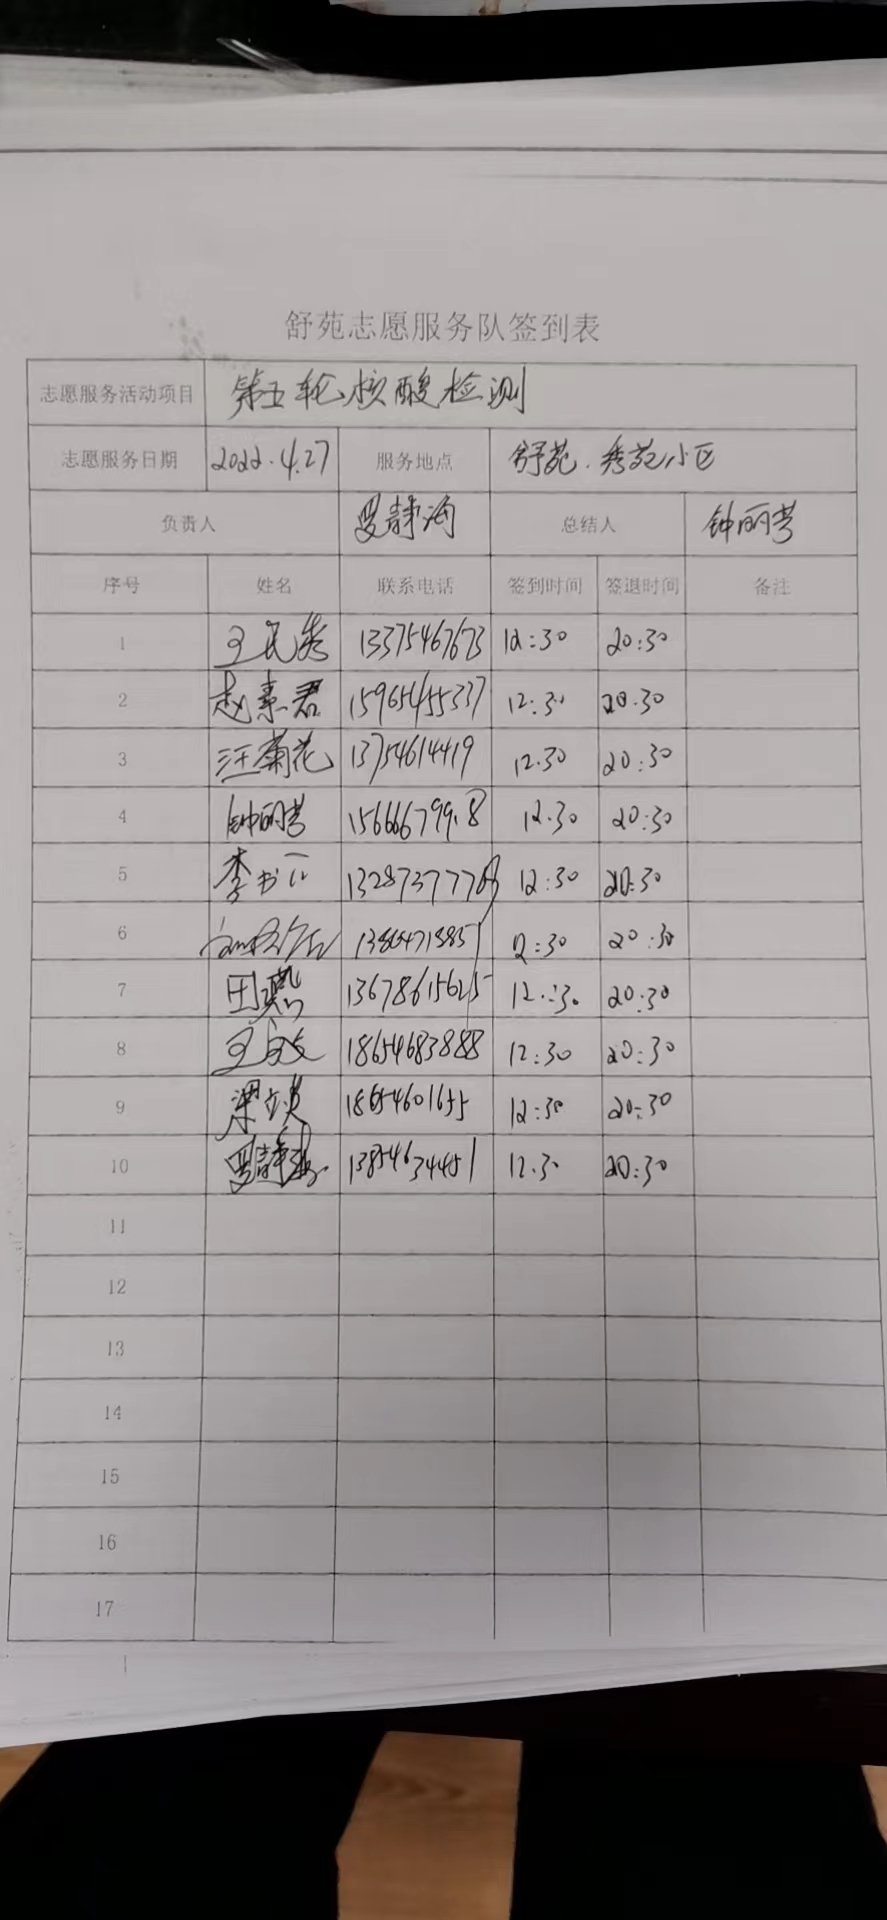 舒苑志愿服务队签到表
志愿服务活动项目 第五轮核酸检测
志愿服务日期 2022.4.27 服务地点 舒苑.秀苑小区
负责人 罗静海 总结人 钟丽芳
序号 姓名 联系电话 签到时间 签退时间 备注
1 王民秀 13375467673 12:30 20:30
2 赵素君 15965455337 12:30 20.30
3 汪菊花 13754614419 12.30 20:30
4 钟丽芳 12.30 20:30
5 李书 12:30 20:30
6 12:30 20:30
7 田 13678615625 12:30 20:30
8 王 18654683888 12:30 20:30
9 梁 18654601655 12:30 20:30
10 罗静海 13854634451 12.30 20:30
11
12
13
14
15
16
17